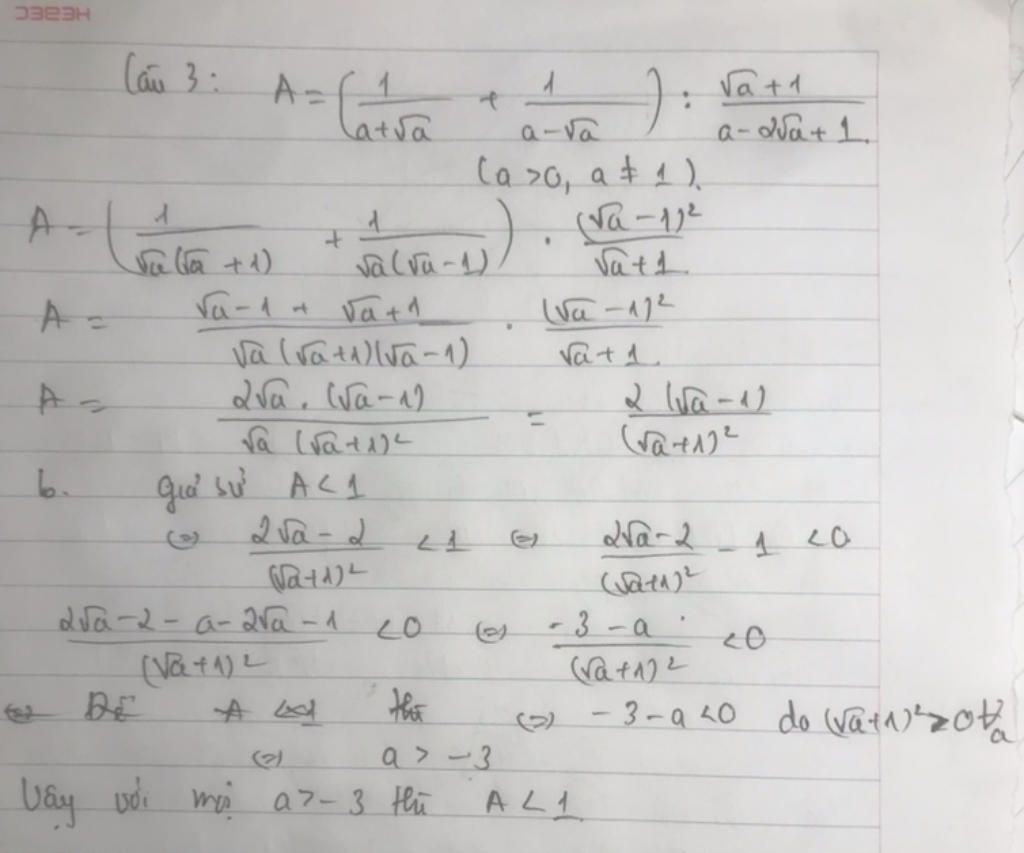 Câu 3: A = (1/(a+√a) + 1/(a-√a)) : (√a+1)/(a-2√a+1).
(a>0, a≠1).
A = (1/(√a(√a+1)) + 1/(√a(√a-1))) . (√a-1)²/(√a+1).
A = (√a-1+√a+1)/(√a(√a+1)(√a-1)) . (√a-1)²/(√a+1).
A = (2√a.(√a-1))/(√a(√a+1)²) = (2(√a-1))/((√a+1)²)
b. giả sử A<1
⇔ (2√a-2)/((√a+1)²) <1 ⇔ (2√a-2)/((√a+1)²) - 1 <0
(2√a-2-a-2√a-1)/((√a+1)²) <0 ⇔ (-3-a)/((√a+1)²) <0
⇔ Để A <1 thì ⇔ -3-a<0 do (√a+1)²>0 ∀a
⇔ a > -3
Vậy với mọi a>-3 thì A < 1